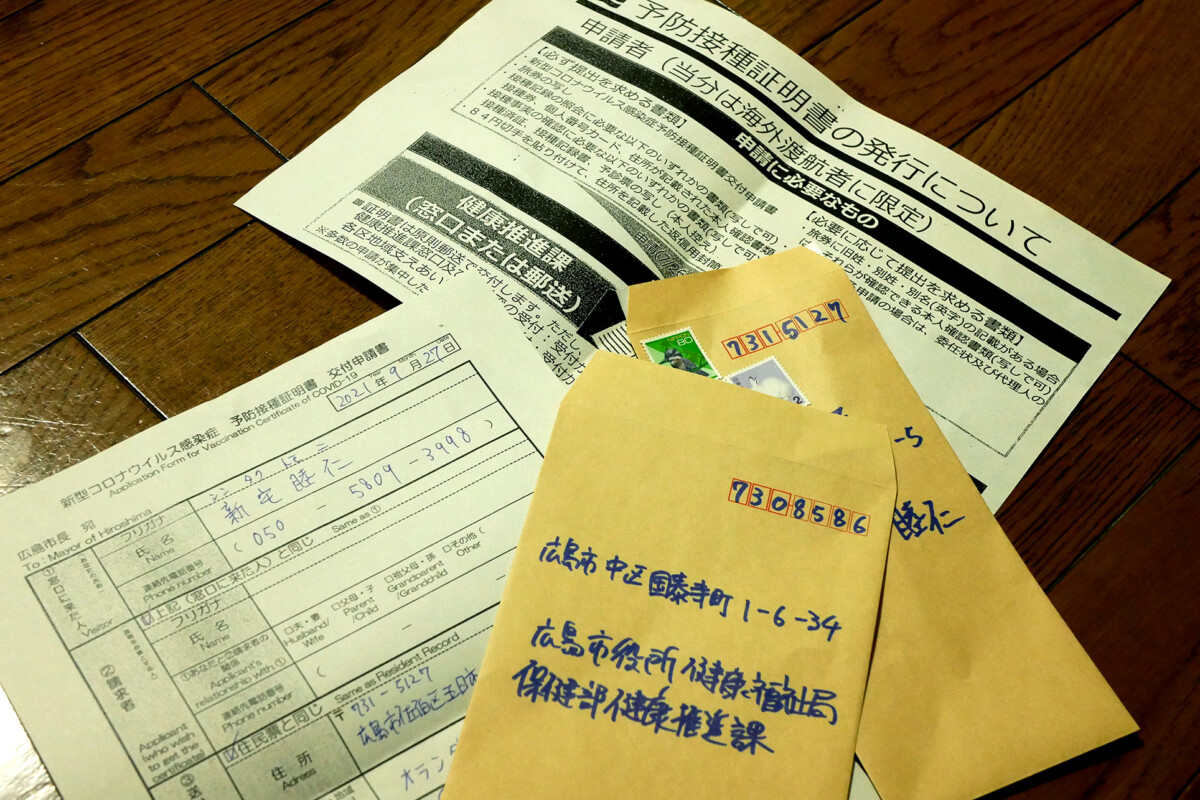 予防接種証明書の発行について
申請者（当分は海外渡航者に限定）
申請に必要なもの
【必ず提出を求める書類】
・新型コロナウイルス感染症予防接種証明書交付申請書
・旅券の写し
・接種記録の照会に必要な以下のいずれかの書類(写しで可)
接種券、個人番号カード、住所が記載された本人確認書類
・接種事実の確認に必要な以下のいずれかの書類
接種済証、接種記録書、予診票の写し(本人控え)
８４円切手を貼り付けて、住所を記載した返信用封筒
【必要に応じて提出を求める書類】
・旅券に旧姓・別姓・別名(英字)の記載がある場合
それらが確認できる本人確認書類(写しで可)
申請の場合は、委任状及び代理人の
健康推進課
（窓口または郵送）
■証明書は原則郵送で交付します。ただし
健康推進課窓口及び
各区地域支えあい
※多数の申請が集中した
の受付：
の受付方
新型コロナウイルス感染症 予防接種証明書 交付申請書
Application Form for Vaccination Certificate of COVID-19
2021年9月27日
広島市長 宛
To: Mayor of Hiroshima
①窓口に来た人
Visitor
フリガナ
氏名
Name
新宅睦仁
連絡先電話番号
Phone number
(050-5809-3998)
②請求者
Applicant
(who wish
to get the
certificate)
☑上記(窓口に来た人)と同じ Same as ①
フリガナ
氏名
Name
①あなたと②請求者の
関係
Applicant's
relationship with ①
□夫・妻
Husband/
Wife
□父母・子
Parent
/Child
□祖父母・孫
Grandparent
/Grandchild
□その他(
Other
連絡先電話番号
Phone number
☑住民票と同じ Same as Resident Record
住所
Adress
〒731-5127
広島市佐伯区五日市
オラン
③送
7315127
80
-5
睦仁
7308586
広島市中区國泰寺町1-6-34
広島市役所健康福祉局
保健部健康推進課